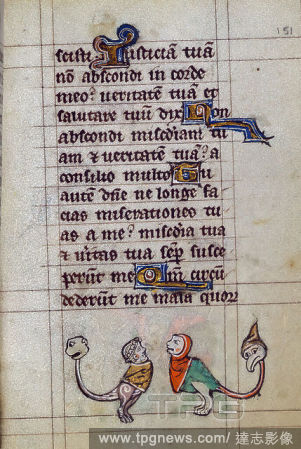 151
scisti Iusticiā tuā
nō abscondi in corde
meo? veritatē tuā et
salutare tuū dixi Non
abscondi misc̄diam tu
am & veritatē tuā? a
consilio multo Tu
autē dn̄e ne longe fa
cias miserationes tu
as a me? misc̄dia tua
& v̄itas tua sep̄ susce
perūt me Qm̄ circū
dederūt me mala quorȝ
TPG
www.tpgnews.com/ 達志影像